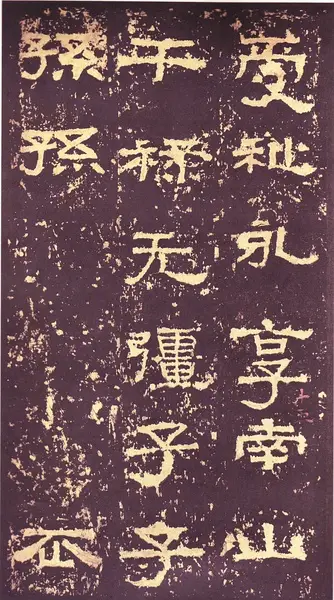 受祉永享南山
干祿无疆子子
孫孫